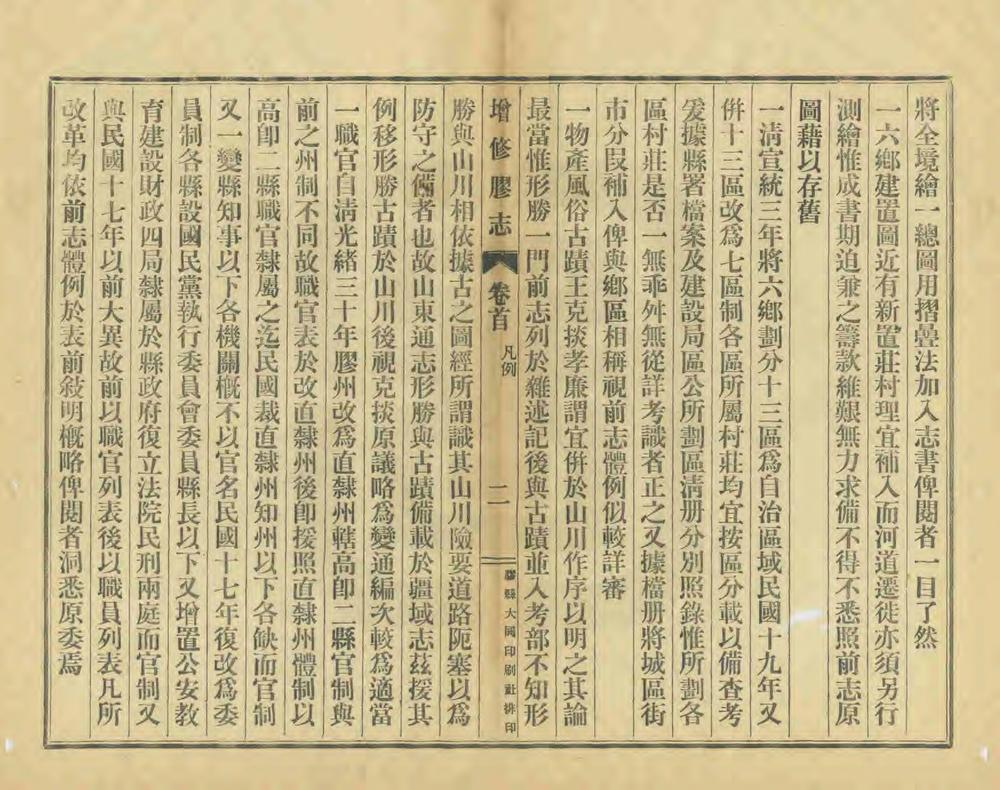 將全境繪一總圖用摺疊法加入志書俾閱者一目了然
一六鄉建置圖近有新置莊村理宜補入而河道遷徙亦須另行
測繪惟成書期迫兼之籌款維艱無力求備不得不悉照前志原
圖藉以存舊
一淸宣統三年將六鄉劃分十三區爲自治區域民國十九年又
併十三區改爲七區制各區所屬村莊均宜按區分載以備查考
爰據縣署檔案及建設局區公所劃區淸册分別照錄惟所劃各
區村莊是否一無乖舛無從詳考識者正之又據檔册將城區街
市分段補入俾與鄉區相稱視前志體例似較詳審
一物產風俗古蹟王克掞孝廉謂宜併於山川作序以明之其論
最當惟形勝一門前志列於雜述記後與古蹟並入考部不知形
增修膠志 卷首 凡例 二 膠縣大同印刷社排印
勝與山川相依據古之圖經所謂識其山川險要道路阨塞以爲
防守之備者也故山東通志形勝與古蹟備載於疆域志玆援其
例移形勝古蹟於山川後視克掞原議略爲變通編次較爲適當
一職官自淸光緒三十年膠州改爲直隸州轄高卽二縣官制與
前之州制不同故職官表於改直隸州後卽援照直隸州體制以
高卽二縣職官隸屬之迄民國裁直隸州知州以下各缺而官制
又一變縣知事以下各機關槪不以官名民國十七年復改爲委
員制各縣設國民黨執行委員會委員縣長以下又增置公安教
育建設財政四局隸屬於縣政府復立法院民刑兩庭而官制又
與民國十七年以前大異故前以職官列表後以職員列表凡所
改革均依前志體例於表前敍明槪略俾閱者洞悉原委焉